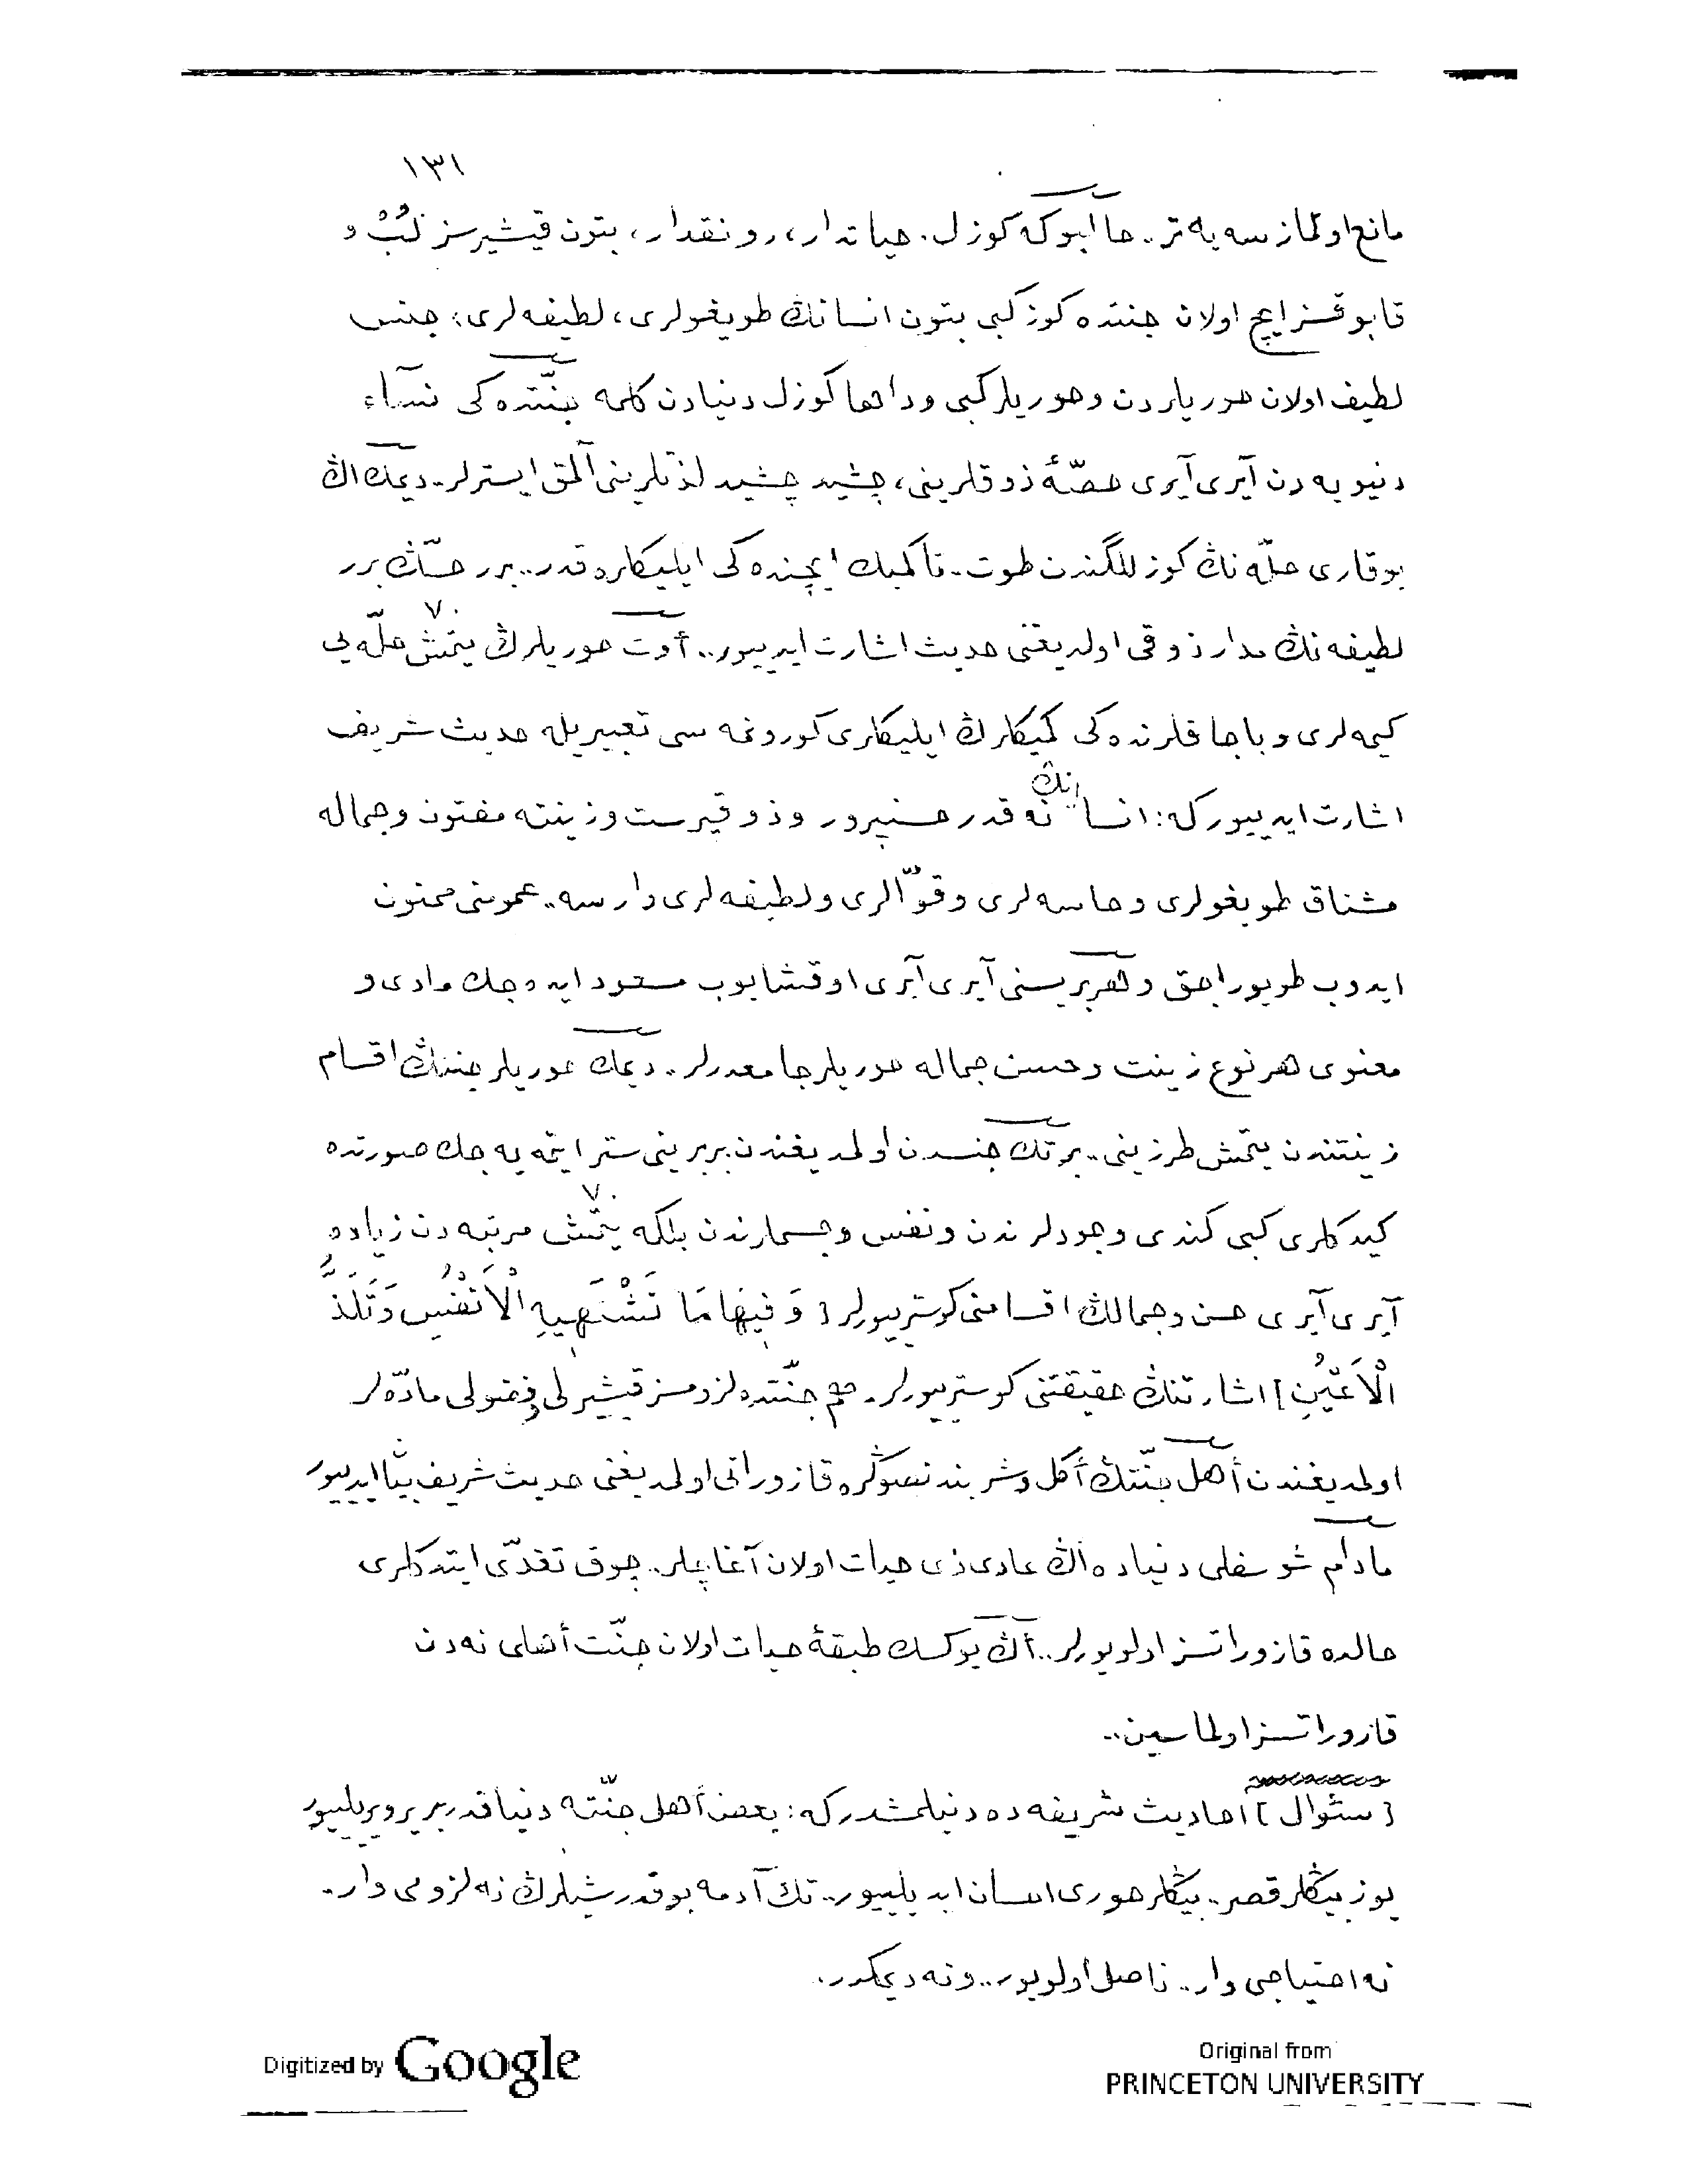 ١٣١
مانع اولماز سه یه تر.. حا ابوکه کوزل. حیاتدار، رونقدار، بتون قیشیرسز لُبّ و
قابوقسز ایچ اولان جنتده کوز کبی بتون انسانڭ طویغولری، لطیفه لری؛ جنس
لطیف اولان حوریلردن و حوریلر کبی و داها کوزل دنیادن کلمه جنّتده کی نسآء
دنیویه دن آیری آیری حصّۀ ذوقلرینی، چشید چشید لذتلرینی آلمق ایسترلر.. دیمك اڭ
یوقاری حلّه نڭ کوزللگندن طوت.. تا کمیك ایچنده کی ایلیکلره قدر.. برر حسّڭ برر
لطیفه نڭ مدار ذوقی اولدیغنی حدیث اشارت ایدییور.. أوت حوریلرڭ یتمش ٧٠ حلّه یی
کیمه لری و باجاقلرنده کی کمیکلرڭ ایلیکلری کورونمه سی تعبیریله حدیث شریف
اشارت ایدییورکه: انسانڭ نه قدر حسنپرور و ذوقپرست و زینته مفتون و جماله
مشتاق طویغولری و حاسه لری و قوّالری و لطیفه لری وارسه.. عمومنی ممنون
ایدوب طویوراجق و هربریسنی آیری آیری اوقشایوب مسعود ایده جك مادی و
معنوی هر نوع زینت و حسن جماله حوریلر جامعدرلر.. دیمك حوریلر جنتڭ اقسام
زینتندن یتمش طرزینی.. بر تك جنسدن اولمدیغندن بربرینی ستر ایتمه یه جك صورتده
کیدکلری کبی کندی وجودلرندن و نفس و جسملرندن بلکه یتمش ٧٠ مرتبه دن زیاده
آیری آیری حسن و جمالڭ اقسامنی کوستریورلر [ وَفِيهَا مَا تَشْتَهِيهِ الْاَنْفُسُ وَتَلَذُّ
الْاَعْيُنُ ] اشارتنڭ حقیقتنی کوسترییورلر.. هم جنّتده لزومسز قیشیرلی و فضولی مادّه لر
اولمدیغندن أهل جنّتڭ أكل و شربندنصوڭره قازوراتی اولمدیغنی حدیث شریف بیان ایدییور
مادام شو سفلی دنیاده اڭ عادی ذی حیات اولان آغاچلر.. چوق تغدّی ایتدکلری
حالده قازوراتسز اولویورلر.. اڭ یوکسك طبقۀ حیات اولان جنّت أهلی نه دن
قازوراتسز اولماسین..
[ سئوال ] احادیث شریفه ده دنیلمشدرکه: بعض أهل جنّته دنیا قدر بر یر ویریلییور
یوز بیڭلر قصر.. بیڭلر حوری احسان ایدیلییور.. تك آدمه بو قدر شیلرڭ نه لزومی وار..
نه احتیاجی وار.. ناصل اولویور.. و نه دیمکدر.
Digitized by Google
Original from
PRINCETON UNIVERSITY